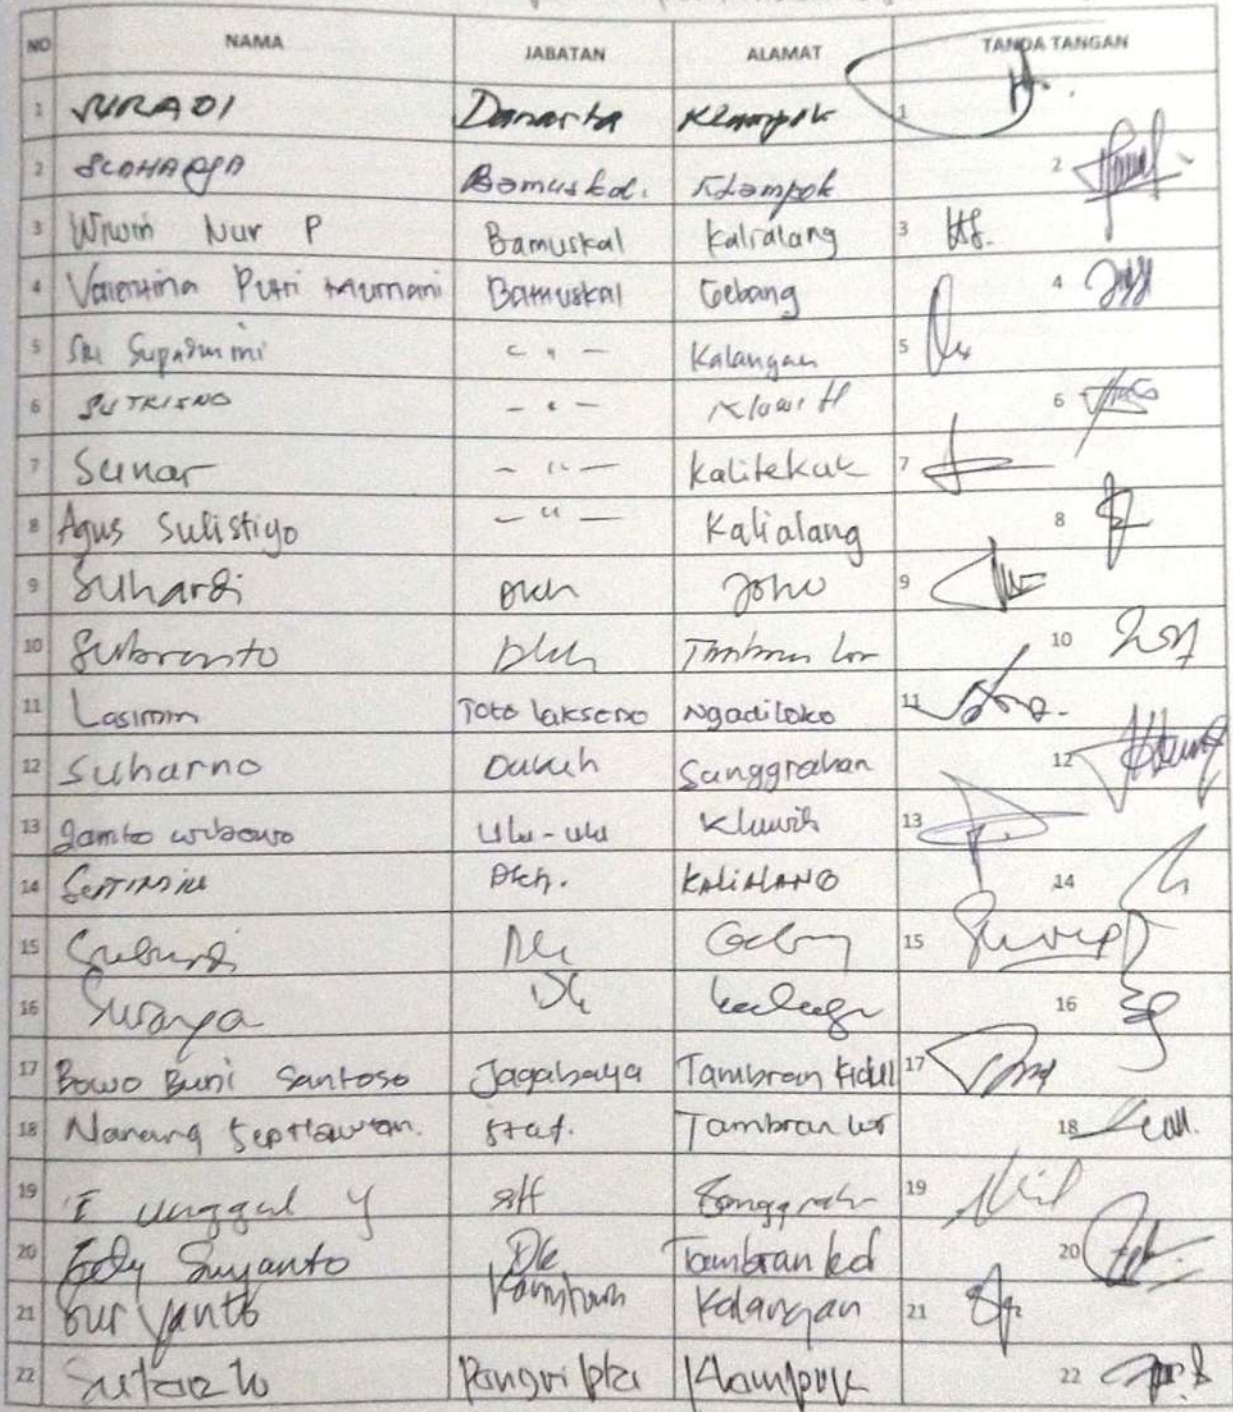 NO NAMA JABATAN ALAMAT TANDA TANGAN
1 SURADI Danarta Klampok 1
2 SUDHARJA Bamuskal. Klampok 2
3 Wiwin Nur P Bamuskal Kalialang 3
4 Valentina Putri Bamuskal Gebang 4
5 Sri Suparmini - " - Kalangan 5
6 SUTRISNO - " - Kluwih 6
7 Sunar - " - Kalitekuk 7
8 Agus Sulistiyo - " - Kalialang 8
9 Suhardi Dkh Joho 9
10 Subranto Dkh Tambran Lor 10
11 Lasimin Toto laksono Ngadiloko 11
12 Suharno Dukuh Sanggrahan 12
13 Jamto wibowo Ulu-ulu Kluwih 13
14 Dkh. KALIALANG 14
15 15
16 16
17 Bowo Buni Santoso Jagabaya Tambran Kidul 17
18 Nanang Septiawan. Staf. Tambran Lor 18
19 unggul y 19
20 Edy Suyanto Dk Tambran kd 20
21 Suryanto Kalangan 21
22 Klampok 22